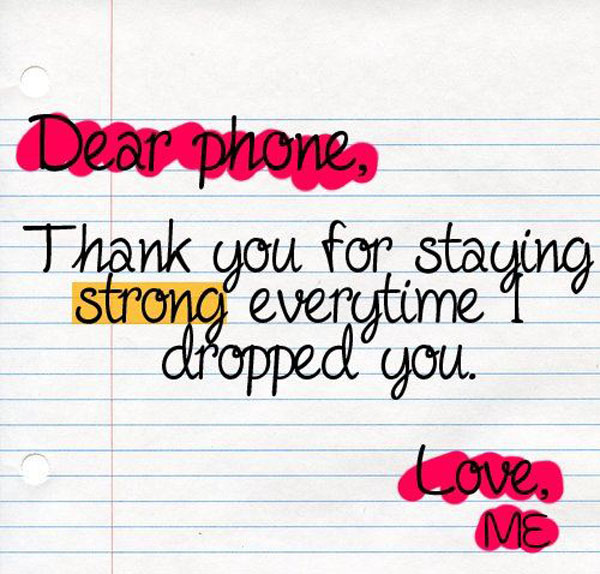 Dear phone,
Thank you for staying
strong everytime I
dropped you.
Love,
ME